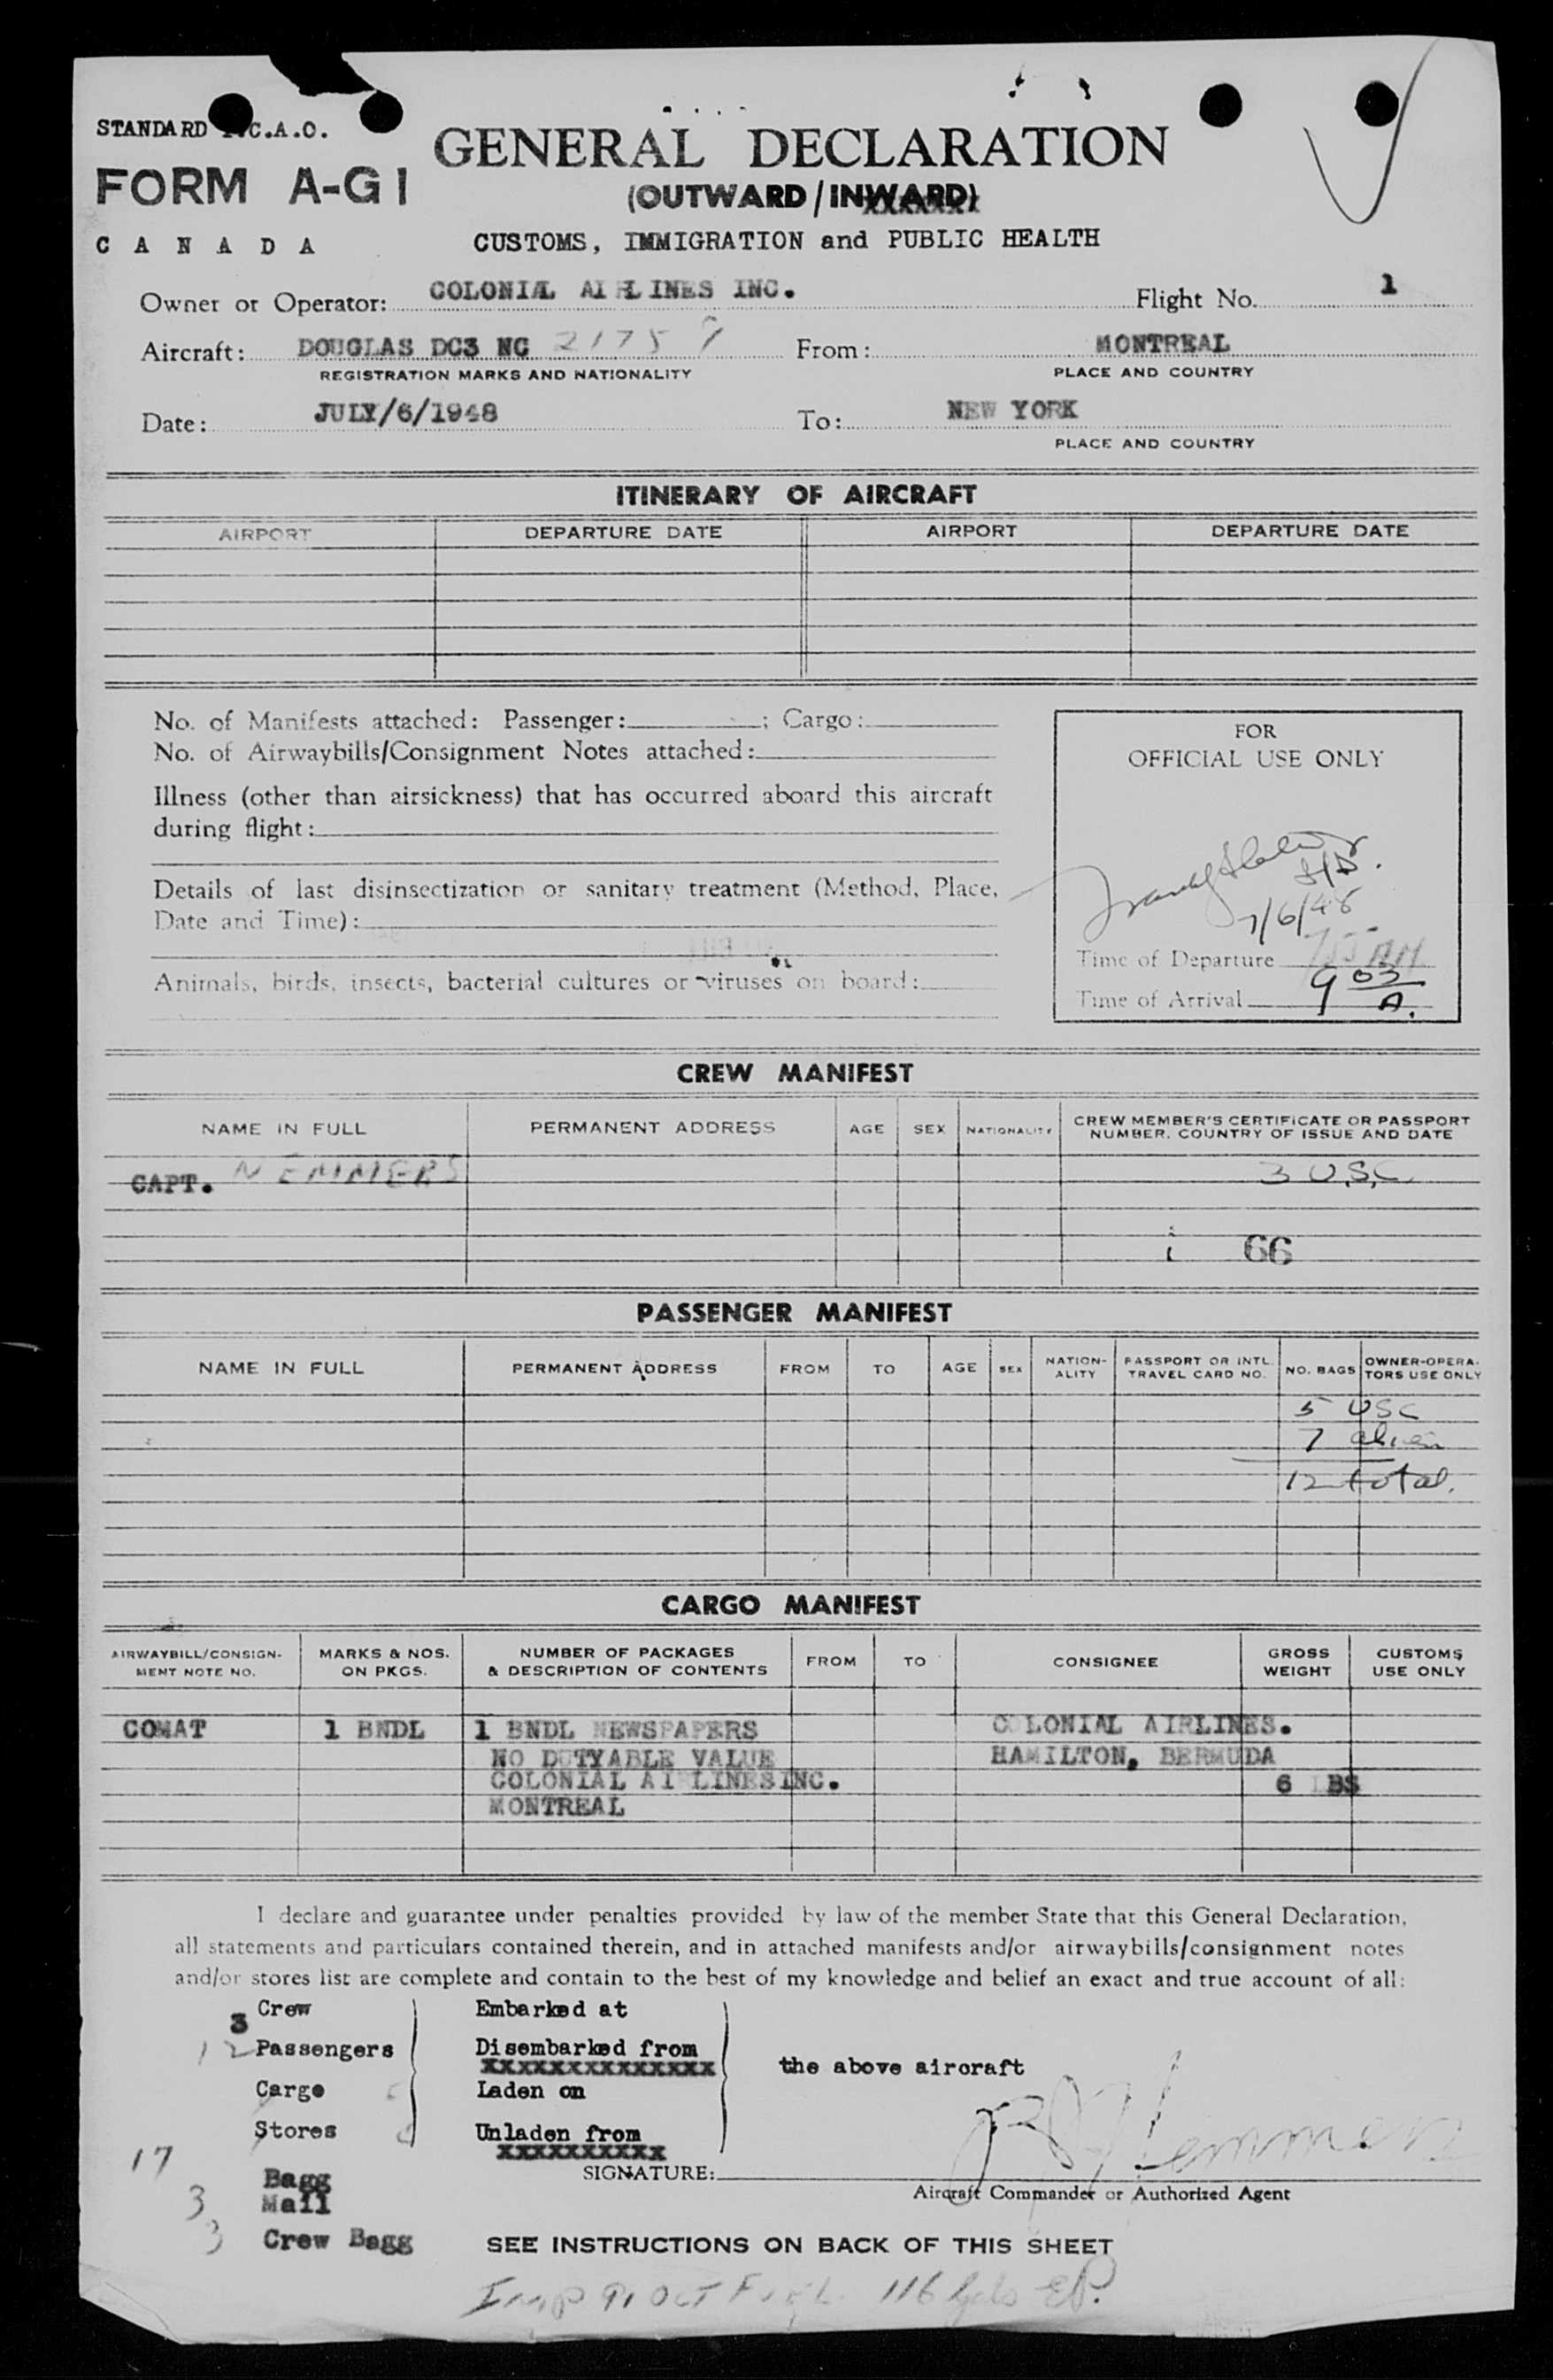 STANDARD I.C.A.O.
FORM A-G1
CANADA
GENERAL DECLARATION
(OUTWARD/INWARD)
CUSTOMS, IMMIGRATION and PUBLIC HEALTH
Owner or Operator: COLONIAL AIRLINES INC. Flight No. 1
Aircraft: DOUGLAS DC3 NC 21759 From: MONTREAL
REGISTRATION MARKS AND NATIONALITY PLACE AND COUNTRY
Date: JULY/6/1948 To: NEW YORK
PLACE AND COUNTRY
ITINERARY OF AIRCRAFT
AIRPORT DEPARTURE DATE AIRPORT DEPARTURE DATE
No. of Manifests attached: Passenger: ; Cargo:
No. of Airwaybills/Consignment Notes attached:
Illness (other than airsickness) that has occurred aboard this aircraft
during flight:
Details of last disinsectization or sanitary treatment (Method, Place,
Date and Time):
Animals, birds, insects, bacterial cultures or viruses on board:
FOR
OFFICIAL USE ONLY
7/6/48
Time of Departure 755 AM
Time of Arrival 9 03 A.
CREW MANIFEST
NAME IN FULL PERMANENT ADDRESS AGE SEX NATIONALITY CREW MEMBER'S CERTIFICATE OR PASSPORT
NUMBER, COUNTRY OF ISSUE AND DATE
CAPT. NEMMERS 3 U.S.C.
66
PASSENGER MANIFEST
NAME IN FULL PERMANENT ADDRESS FROM TO AGE SEX NATION-ALITY PASSPORT OR INTL. TRAVEL CARD NO. NO. BAGS OWNER-OPERA-TORS USE ONLY
5 USC
7 alien
12 total.
CARGO MANIFEST
AIRWAYBILL/CONSIGN-MENT NOTE NO. MARKS & NOS. ON PKGS. NUMBER OF PACKAGES & DESCRIPTION OF CONTENTS FROM TO CONSIGNEE GROSS WEIGHT CUSTOMS USE ONLY
COMAT 1 BNDL 1 BNDL NEWSPAPERS COLONIAL AIRLINES.
NO DUTYABLE VALUE HAMILTON, BERMUDA
COLONIAL AIRLINES INC. 6 LBS
MONTREAL
I declare and guarantee under penalties provided by law of the member State that this General Declaration,
all statements and particulars contained therein, and in attached manifests and/or airwaybills/consignment notes
and/or stores list are complete and contain to the best of my knowledge and belief an exact and true account of all:
3 Crew Embarked at
12 Passengers Disembarked from
XXXXXXXXXXXXXX the above aircraft
Cargo Laden on
Stores Unladen from
XXXXXXXXXX
17 Bagg
SIGNATURE:
Aircraft Commander or Authorized Agent
3 Mail
3 Crew Bagg SEE INSTRUCTIONS ON BACK OF THIS SHEET